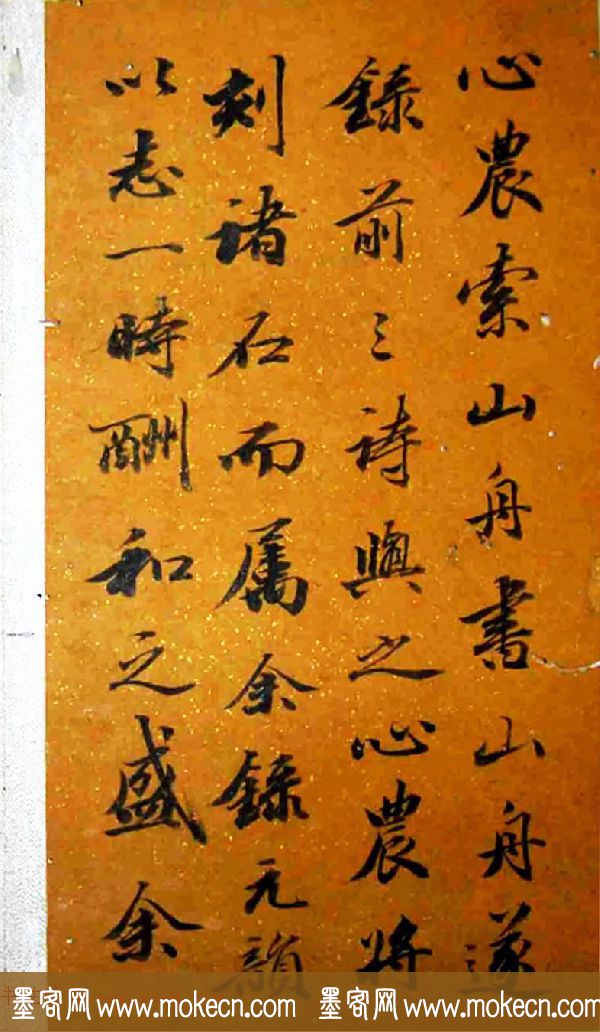 心農索山舟書山舟遂
錄前三詩與之心農將
刻諸石而属余錄元韻
以志一時酬和之盛余
墨客网 www.mokecn.com 墨客网 www.mokecn.com